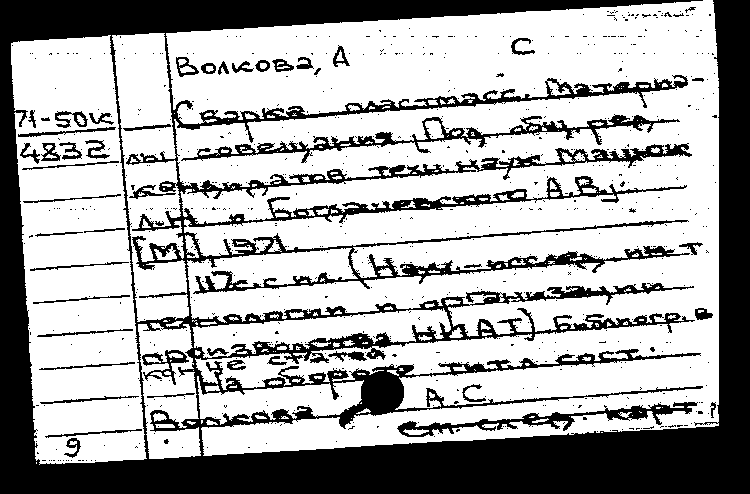 Волкова, А С
71-50к
Сварка пластмасс. Материа-
4832
лы совещания [Под общ. ред.
кандидатов техн. наук Мацюк
Л.Н. и Богдашевского А.В.].
[М.], 1971.
117с. с ил. (Науч.-исслед. ин-т
технологии и организации
производства НИАТ) Библиогр. в
конце статей.
На обороте тит. л. сост.
Волкова А.С.
см. след. карт.
9